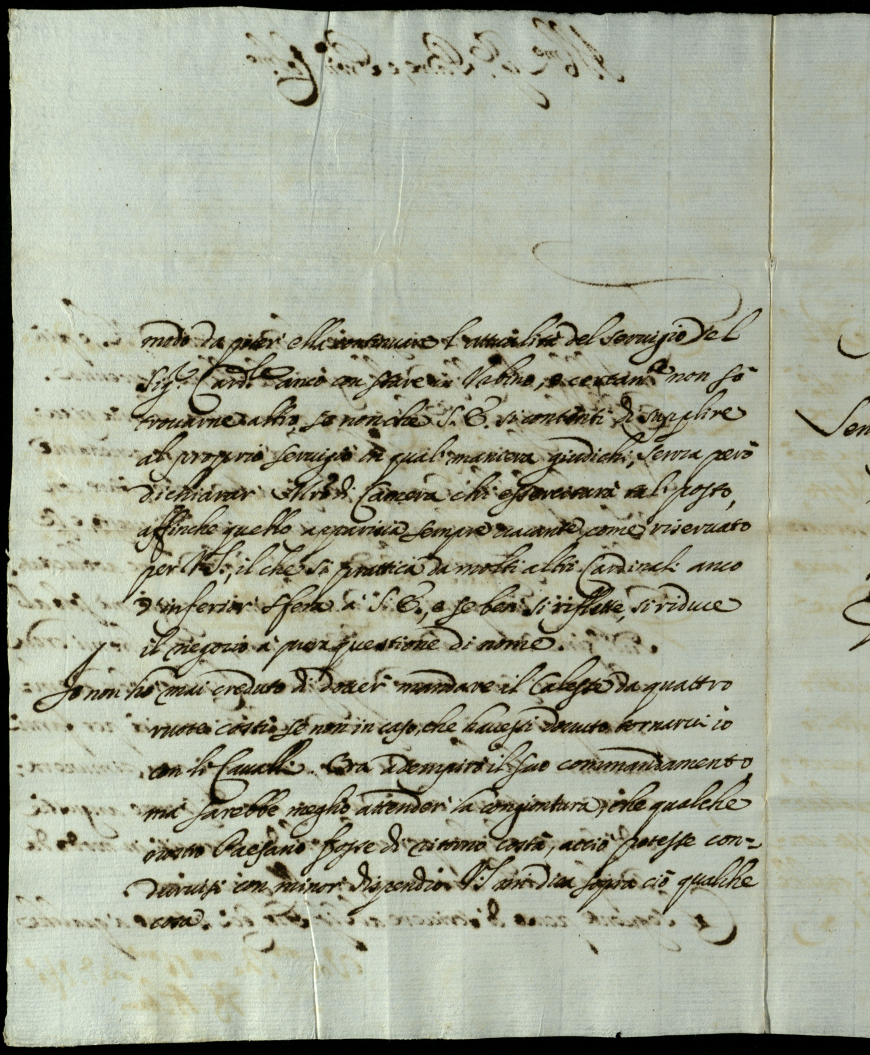 modo da poter ella continuare l'attualità del servigio del
Sig.r Card.le anco con stare in Urbino, e certam.te non sò
trovarne altro, se non che S. E. si contenti di supplire
al proprio servigio in qual maniera giudichi, senza però
dichiarar Mro di Camera chi essercitarà tal posto,
affinche quello apparisca sempre vacante, come riservato
per V.S., il che si prattica da molti altri Cardinali anco
d'inferior sfera à S. E., e se ben si riflette, si riduce
il negozio à pura questione di nome.
Io non hò mai creduto di dover mandare il Calesse da quattro
ruote costà se non in caso, che havessi dovuto tornarvi io
con li Cavalli. Ora adempirò il suo commandamento,
mà sarebbe meglio attender la congiontura, che qualche
nostro Paesano fosse di ritorno costà, acciò potesse con=
durvisi con minor dispendio. V.S. mi dica sopra ciò qualche
cosa.
Sen